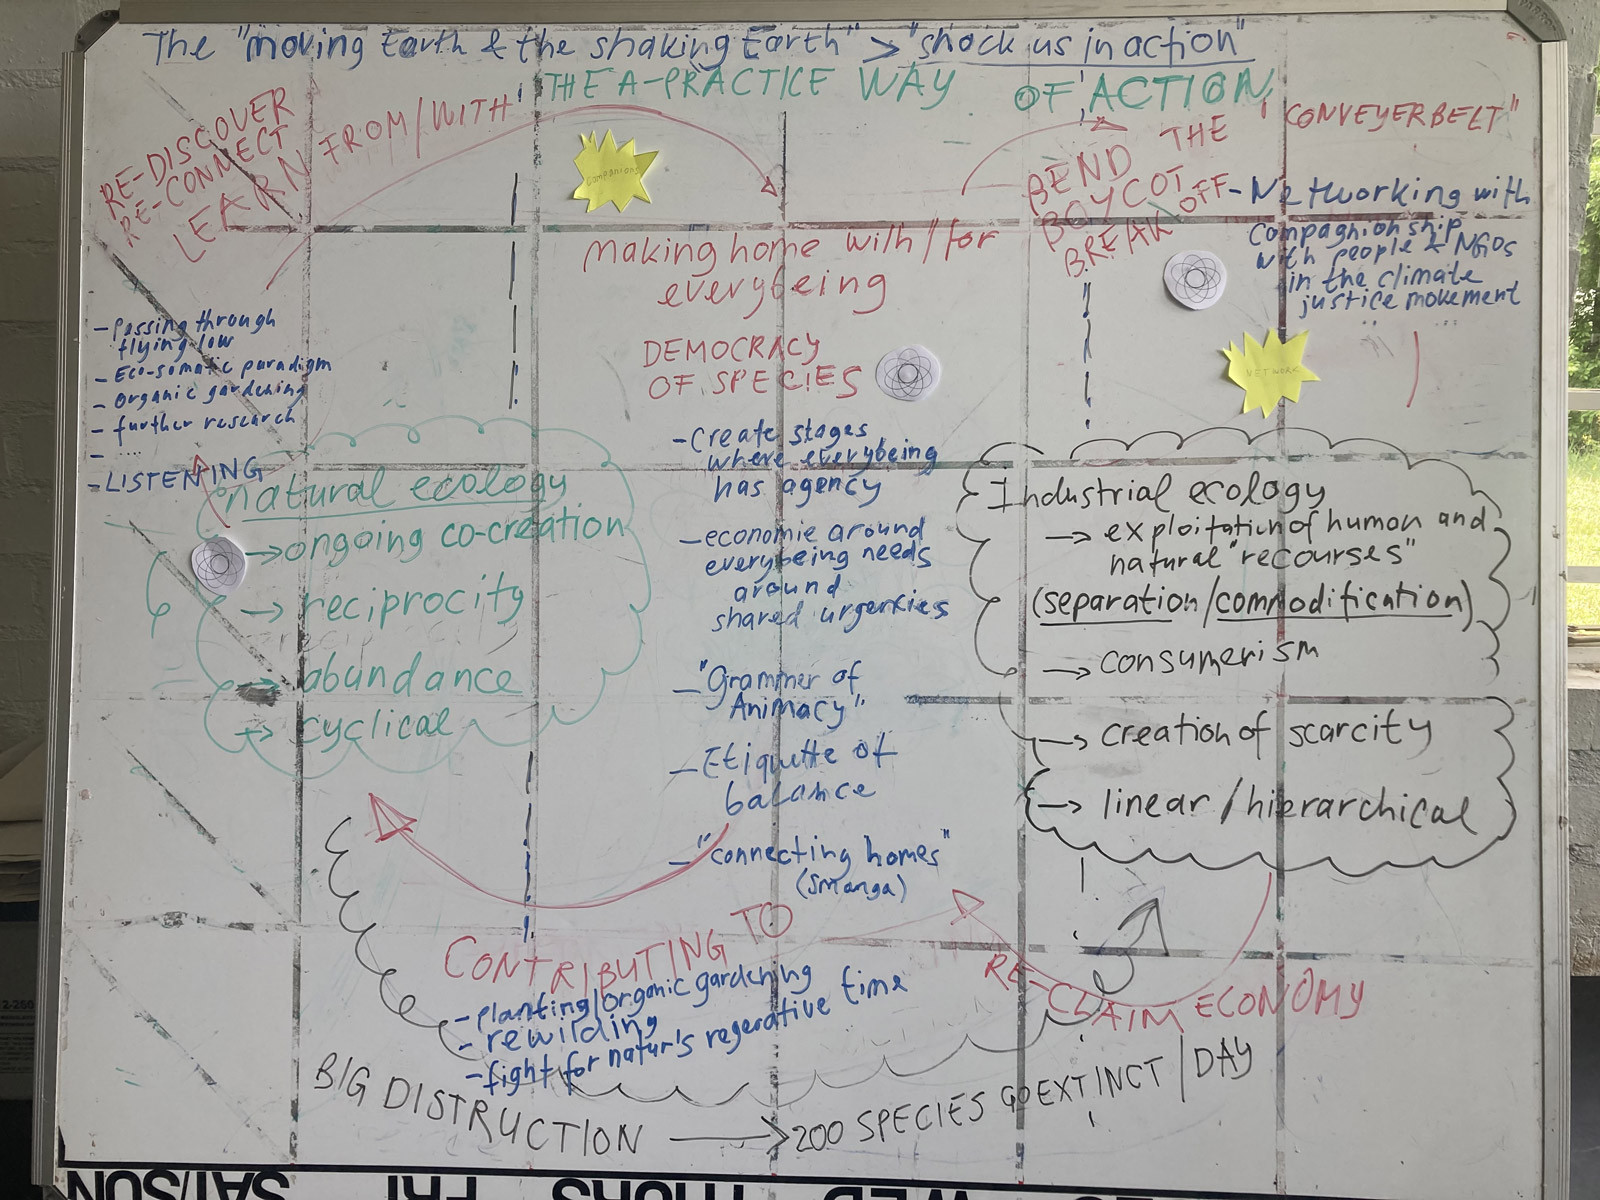 The "moving Earth & the shaking Earth" > "shock us in action"
THE A-PRACTICE WAY OF ACTION
RE-DISCOVER
RE-CONNECT
LEARN FROM/WITH
companions
BEND THE "CONVEYERBELT"
BOYCOT
BREAK OFF
- Networking with
Compagnionship
with people & NGOs
in the climate
justice movement
NETWORK
making home with/for
everybeing
DEMOCRACY
OF SPECIES
- Passing through
flying low
- Eco-somatic paradigm
- organic gardening
- further research
- ....
- LISTENING
natural ecology
→ ongoing co-creation
→ reciprocity
→ abundance
→ cyclical
- Create stages
where everybeing
has agency
- economie around
everybeing needs
around
shared urgencies
- "Grammer of
Animacy"
- Etiquette of
balance
- "connecting homes"
(Smanga)
Industrial ecology
→ exploitation of human and
natural "recourses"
(separation/commodification)
→ consumerism
→ creation of scarcity
→ linear / hierarchical
CONTRIBUTING TO
- planting/organic gardening
- rewilding
- fight for natur's regerative time
RE-CLAIM ECONOMY
BIG DISTRUCTION → 200 SPECIES GO EXTINCT / DAY
SAT/SUN FRI THURS WED